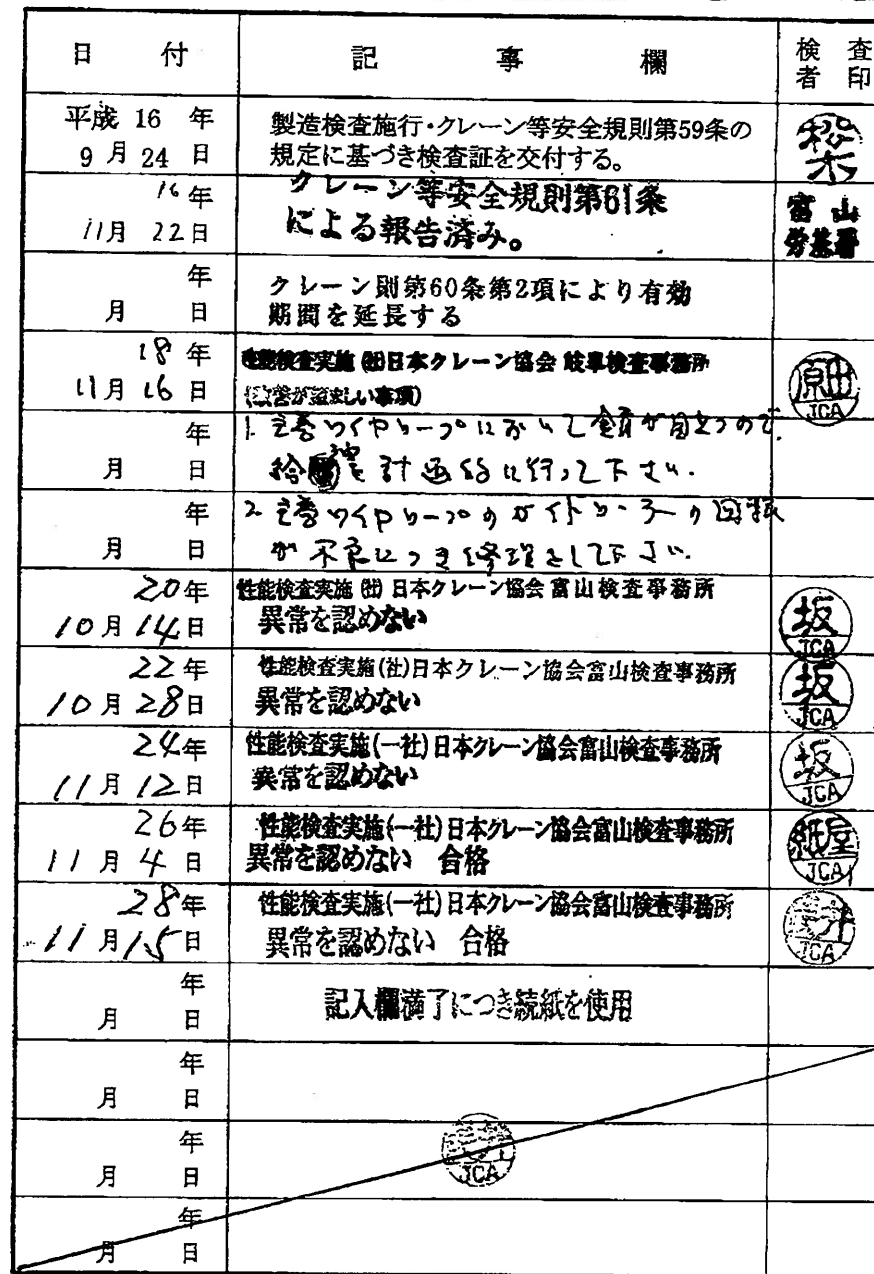 日 付 記 事 欄 検 査
者 印
平成 16 年
9 月 24 日
製造検査施行・クレーン等安全規則第59条の
規定に基づき検査証を交付する。
16 年
11月 22日
クレーン等安全規則第61条
による報告済み。
富山
労基署
年
月 日
クレーン則第60条第2項により有効
期間を延長する
18 年
11月 16 日
性能検査実施(社)日本クレーン協会 岐阜検査事務所
(改善が望ましい事項)
原田
JCA
年
月 日
1. 主巻ワイヤロープにおいて発錆が目立つので、
給油を計画的に行って下さい.
年
月 日
2. 主巻ワイヤロープのガイドローラーの回転
が不良につき修理をして下さい.
20年
10月14日
性能検査実施(社)日本クレーン協会富山検査事務所
異常を認めない
坂
JCA
22年
10月28日
性能検査実施(社)日本クレーン協会富山検査事務所
異常を認めない
坂
JCA
24年
11月12日
性能検査実施(一社)日本クレーン協会富山検査事務所
異常を認めない
坂
JCA
26年
11月 4 日
性能検査実施(一社)日本クレーン協会富山検査事務所
異常を認めない 合格
紙屋
JCA
28年
11月15日
性能検査実施(一社)日本クレーン協会富山検査事務所
異常を認めない 合格
JCA
年
月 日
記入欄満了につき続紙を使用
年
月 日
年
月 日
JCA
年
月 日